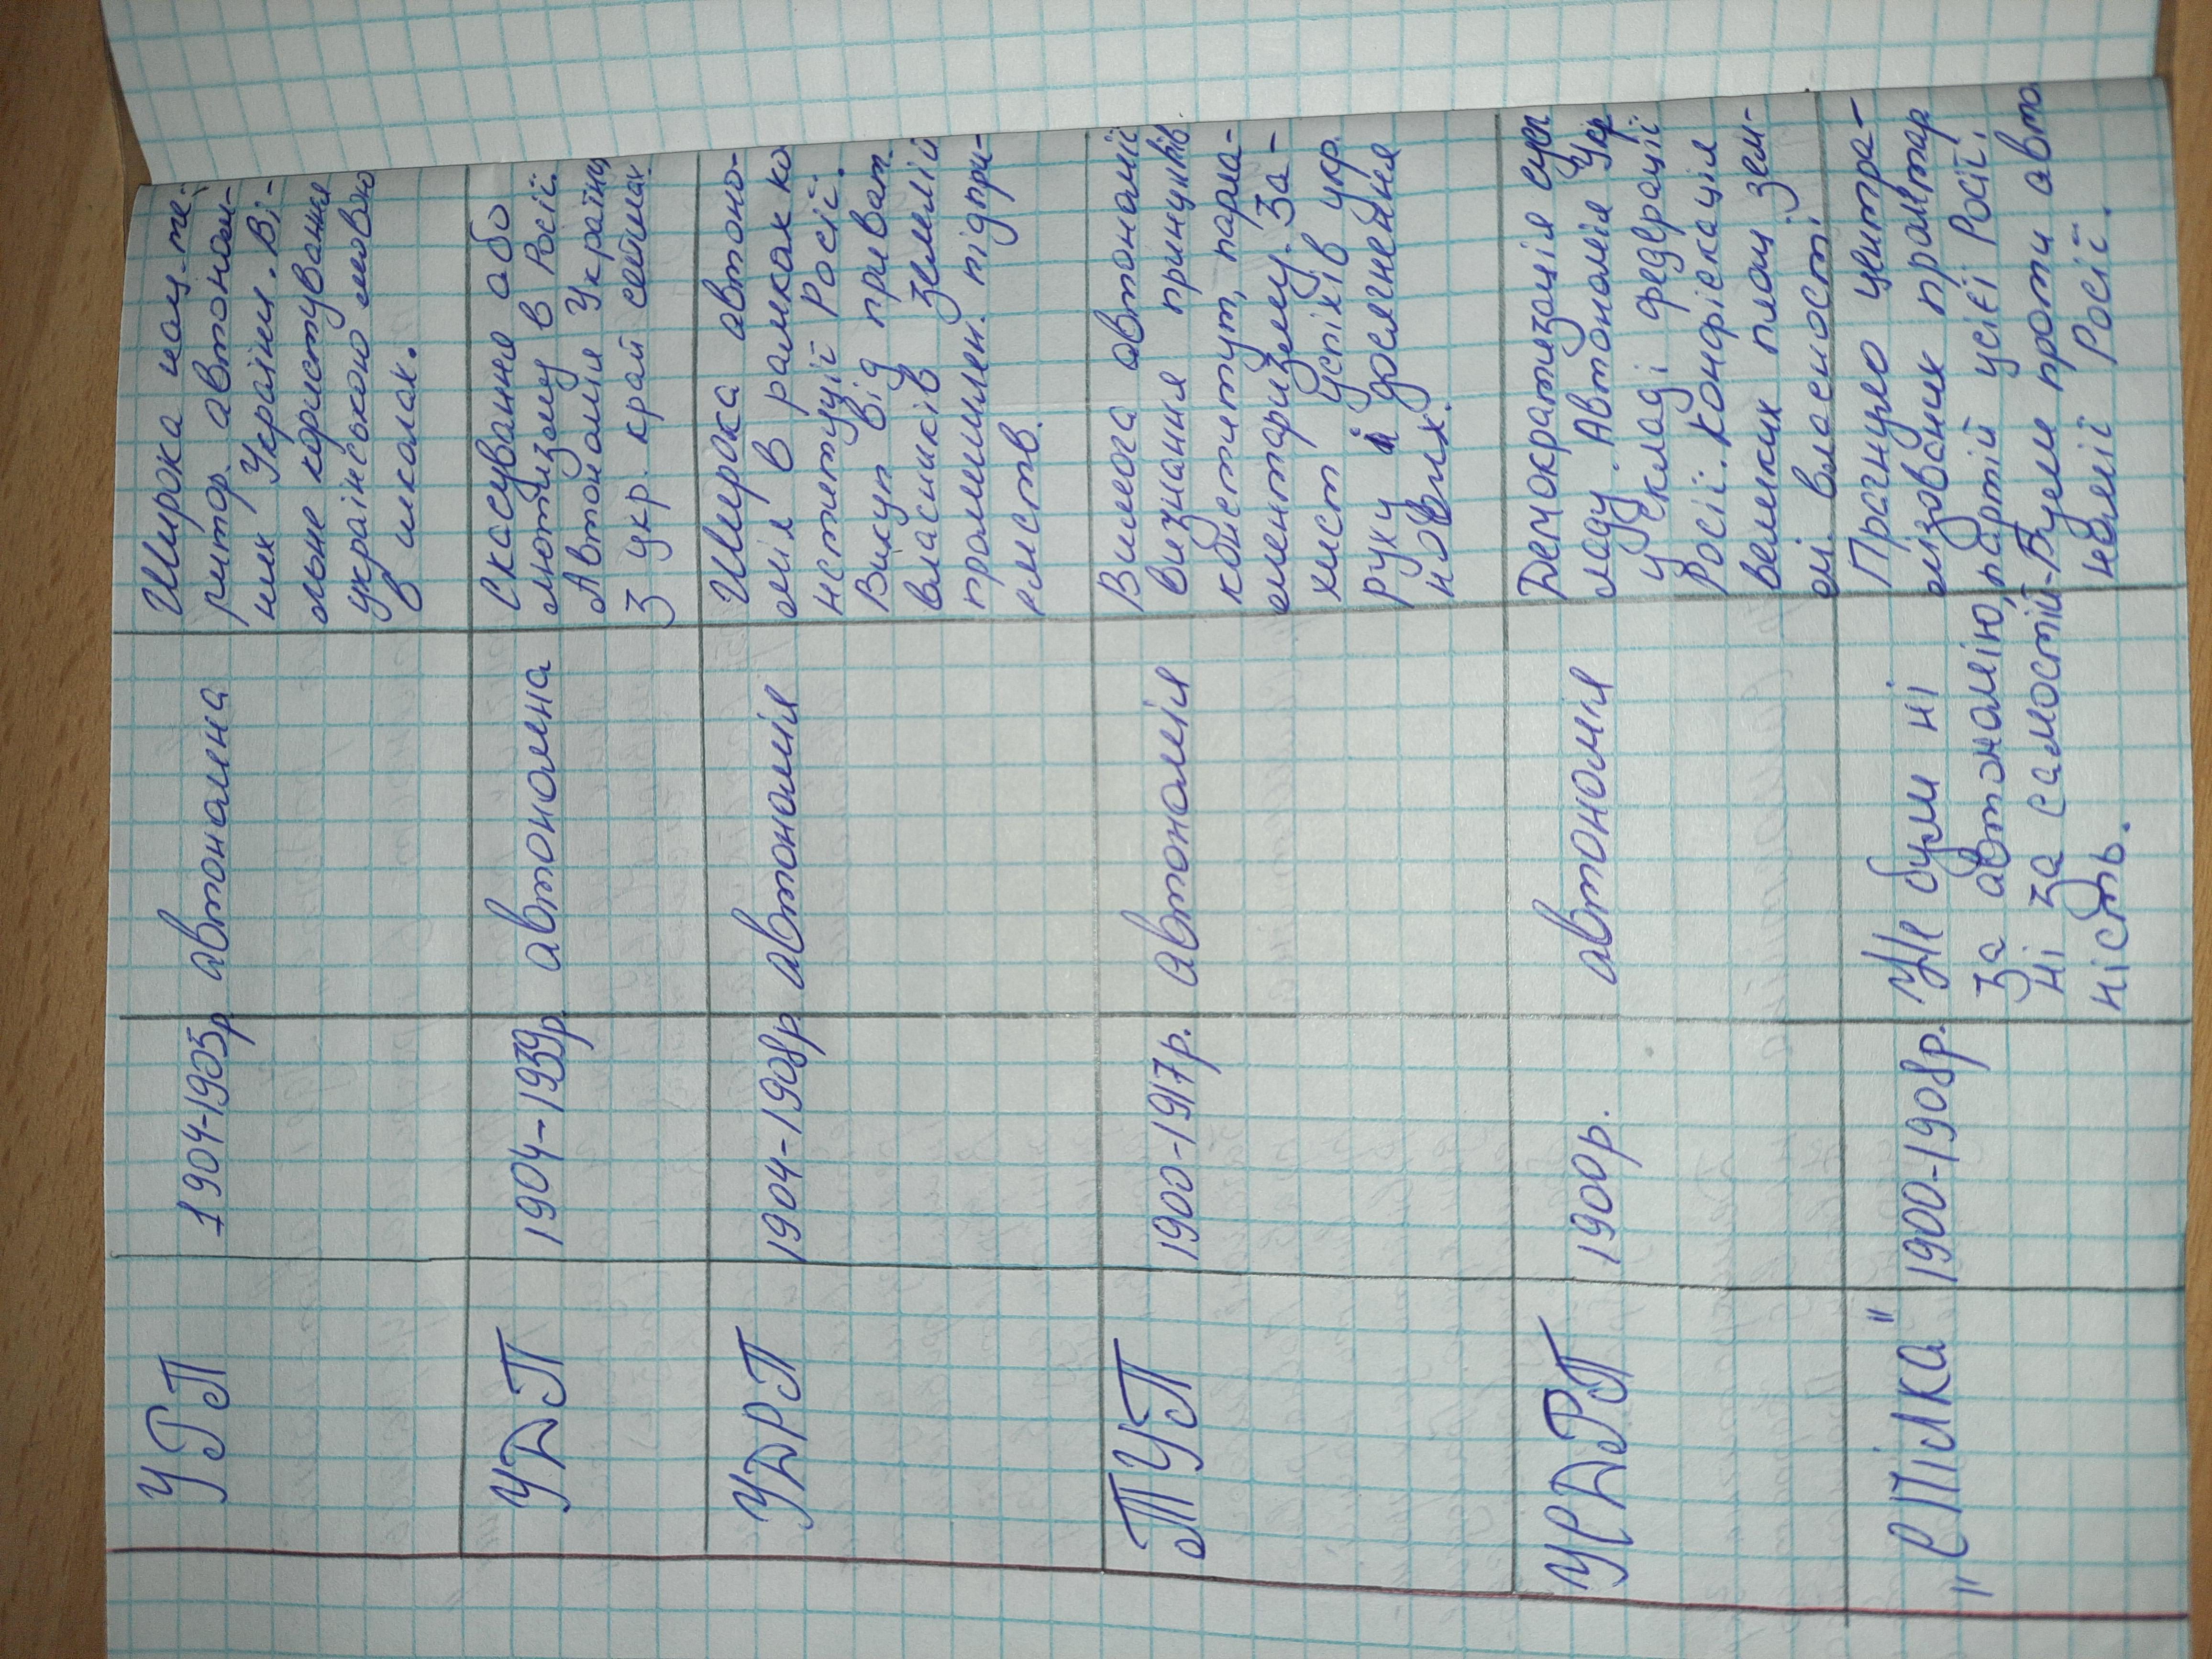 УРП
1904-1905р
автономна
Широка нац.-те-
ритор. автоном-
ція України. Ві-
льне користування
українською мовою
в школах.
УДП
1904-1939р
автономна
Скасування або
лютизму в Росії.
Автономія України
З укр. край сеймах.
УДРП
1904-1908р.
автономія
Широка автоно-
мія в рамках ко
нституції Росії.
Викуп від приват.
власників землій
промишлен. підпри-
ємств.
ТУП
1900-1917р.
автономія
Вимога автономії
визнання принципів
конституц, парла-
ментаризму. За-
хист успіхів укр.
руху й досягнення
нових.
УСДРП
1900р.
автономія
Демократизація сусп
ладу. Автономія Укр
у складі федерації
Росії. Конфіскація
великих площ зем-
ел. власності.
"СПілка"
1900-1908р.
Не були ні
за автономію,
ні за самостій-
ність.
Прагнуло центра-
лізованих пролтар
партій усієї Росії.
Були проти авто
номії Росії.